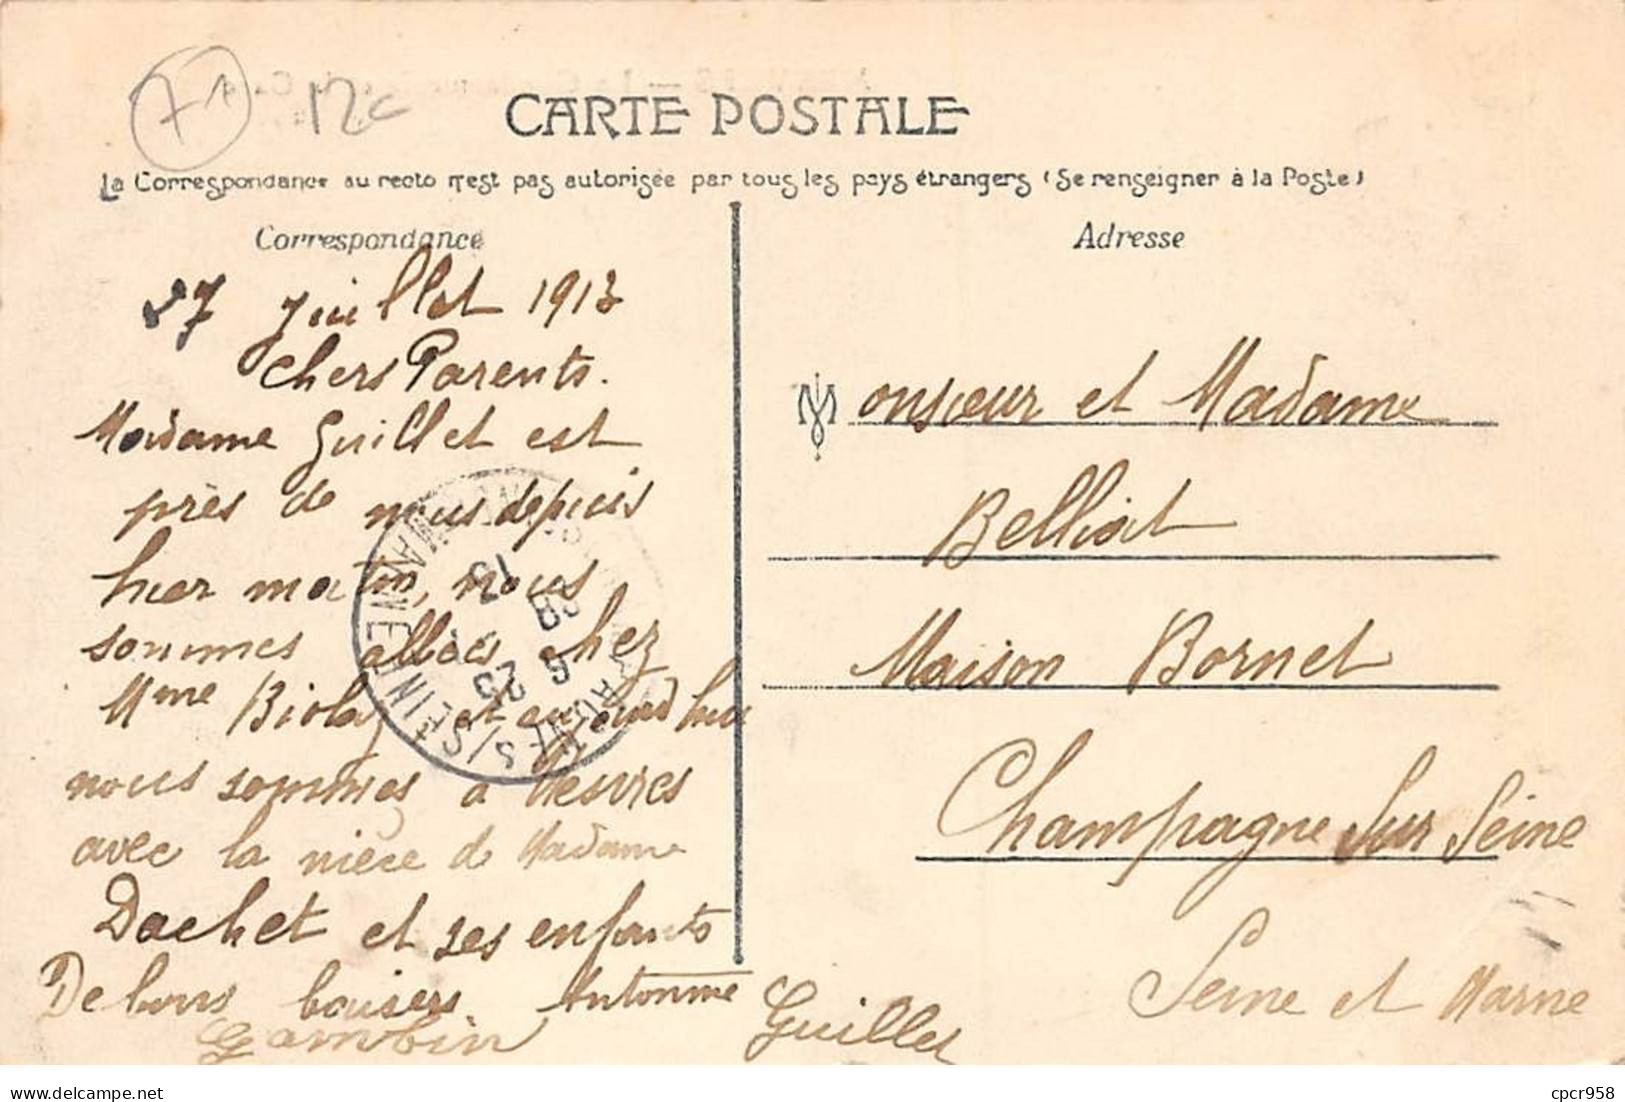 71 12c
CARTE POSTALE
La Correspondance au recto n'est pas autorisée par tous les pays étrangers (Se renseigner à la Poste)
Correspondance
27 Juillet 1913
chers Parents.
Madame Guillet est
près de nous depuis
hier matin, nous
sommes allées chez
Mme Biolay et aujourd'hui
nous sommes à
avec la nièce de Madame
Dachet et ses enfants
De bons baisers. Antonine
Gambin Guillet
Adresse
Monsieur et Madame
Belliot
Maison Bornet
Champagne sur Seine
Seine et Marne
S/SEINE
28
13
www.delcampe.net
cpcr958